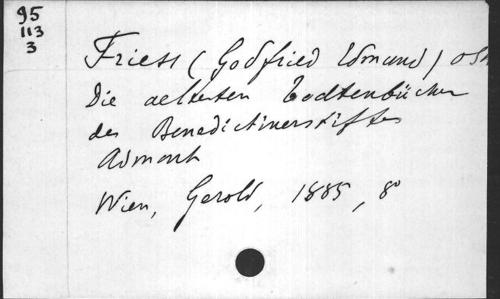 95
113
3
Friess (Godfried Edmund) OSB
Die aeltesten Todtenbücher
des Benedictinerstiftes
Admont
Wien, Gerold, 1885, 8°